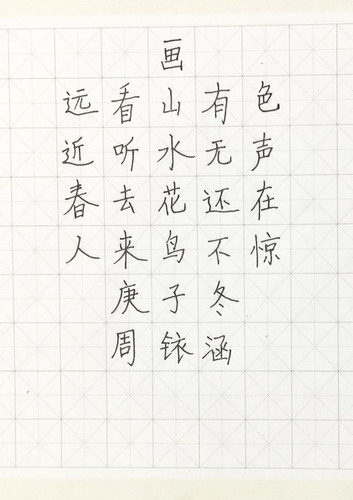 画
远看山有色
近听水无声
春去花还在
人来鸟不惊
庚子冬
周铱涵